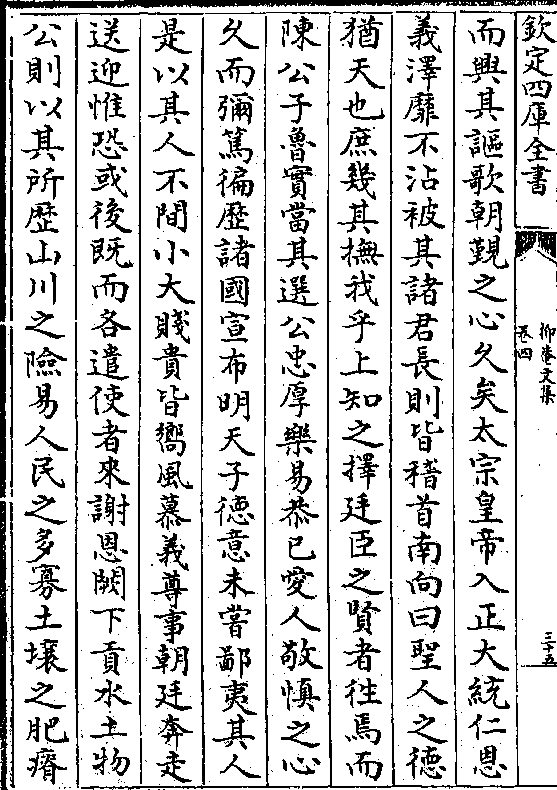 欽定四庫全書
抑菴文集
卷四
三十五
而興其謳歌朝覲之心久矣太宗皇帝入正大統仁恩
義澤靡不沾被其諸君長則皆稽首南向曰聖人之德
猶天也庶幾其撫我乎上知之擇廷臣之賢者徃焉而
陳公子魯實當其選公忠厚樂易恭已愛人敬慎之心
久而彌篤徧歴諸國宣布明天子德意未嘗鄙夷其人
是以其人不間小大賤貴皆嚮風慕義尊事朝廷奔走
送迎惟恐或後既而各遣使者來謝恩闕下貢水土物
公則以其所歴山川之險易人民之多寡土壤之肥瘠